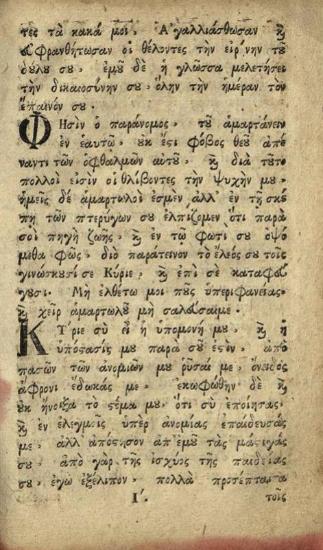 τες τὰ κακά μοι. Ἀγαλλιάσθωσαν ϗ
ευφρανθήτωσαν οἱ θέλοντες την εἰρήνην του
δύλυ συ. ἐμῦ δὲ ἡ γλῶσσα μελετήσει
την δικαιοσύνην συ, ὅλην τὴν ἡμέραν τὸν
ἔπαινόν συ.
Φησιν ὁ παράνομος, τῦ ἁμαρτάνειν
ἐν ἑαυτῶ, υκ ἔστι φόβος θεῦ ἀπέ
ναντι τῶν ὀφθαλμῶν αὐτῦ, ϗ διὰ τῦτο
πολλοὶ εἰσὶν οἱ θλίβοντες τὴν ψυχήν μυ,
ἡμεῖς δὲ ἁμαρτωλοί ἐσμὲν ἀλλ' ἐν τῇ σκέ
πῃ τῶν πτερύγων συ ἐλπίζομεν ὅτι παρὰ
σοὶ πηγὴ ζωῆς, ϗ ἐν τῶ φωτί συ ὀψό
μεθα φῶς, διὸ παράτεινον τὸ ἔλεός συ τοῖς
γινώσκυσί σε Κύριε, ϗ ἐπὶ σὲ καταφεύ
γυσι. Μὴ ἐλθέτω μοι πυς ὑπεριφανείας
ϗ χεὶρ ἁμαρτωλῦ μὴ σαλεύσαι με.
Κύριε σὺ εἶ ἡ ὑπομονή μυ, ϗ ἡ
ὑπόστασίς μυ παρὰ συ ἐστιν, ἀπὸ
πασῶν τῶν ἀνομιῶν μυ ῥῦσαί με, ὄνειδος
ἄφρονι ἔδωκάς με. ἐκωφώθην δὲ ϗ
υκ ἤνοιξα τὸ στόμα μυ, ὅτι σὺ ἐποίησας,
ϗ ἐν ἐλεγμοῖς ὑπὲρ ἀνομίας ἐπαίδευσάς
με, ἀλλ ἀπόστησον ἀπ' ἐμῦ τὰς μάστιγάς
συ, ἀπὸ γὰρ τῆς ἰσχύος τῆς παιδείας
συ, ἐγὼ ἐξέλιπον, πολλὰ προσέπταισα
Ι΄. τοῖς